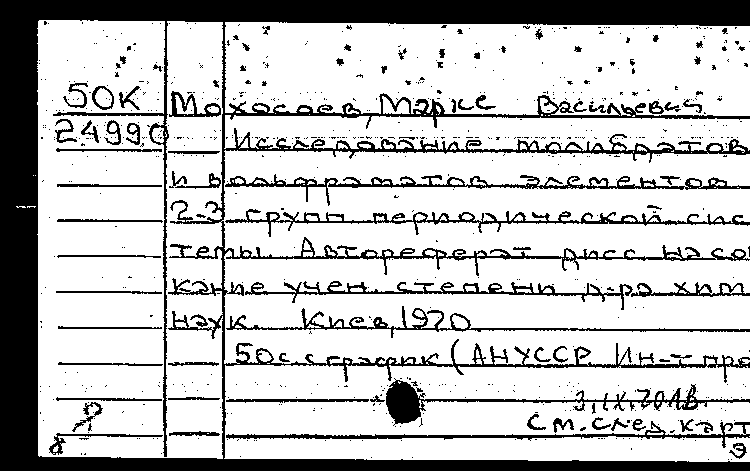 50К Мохосоев, Маркс Васильевич
24990 Исследование молибдатов
и вольфраматов элементов
2-3 групп периодической сис
темы. Автореферат дисс. на сои
кание учен. степени д-ра хим.
наук. Киев, 1970.
50 с. с график (АН УССР. Ин-т про
3.IX.70
См. след. карт
8